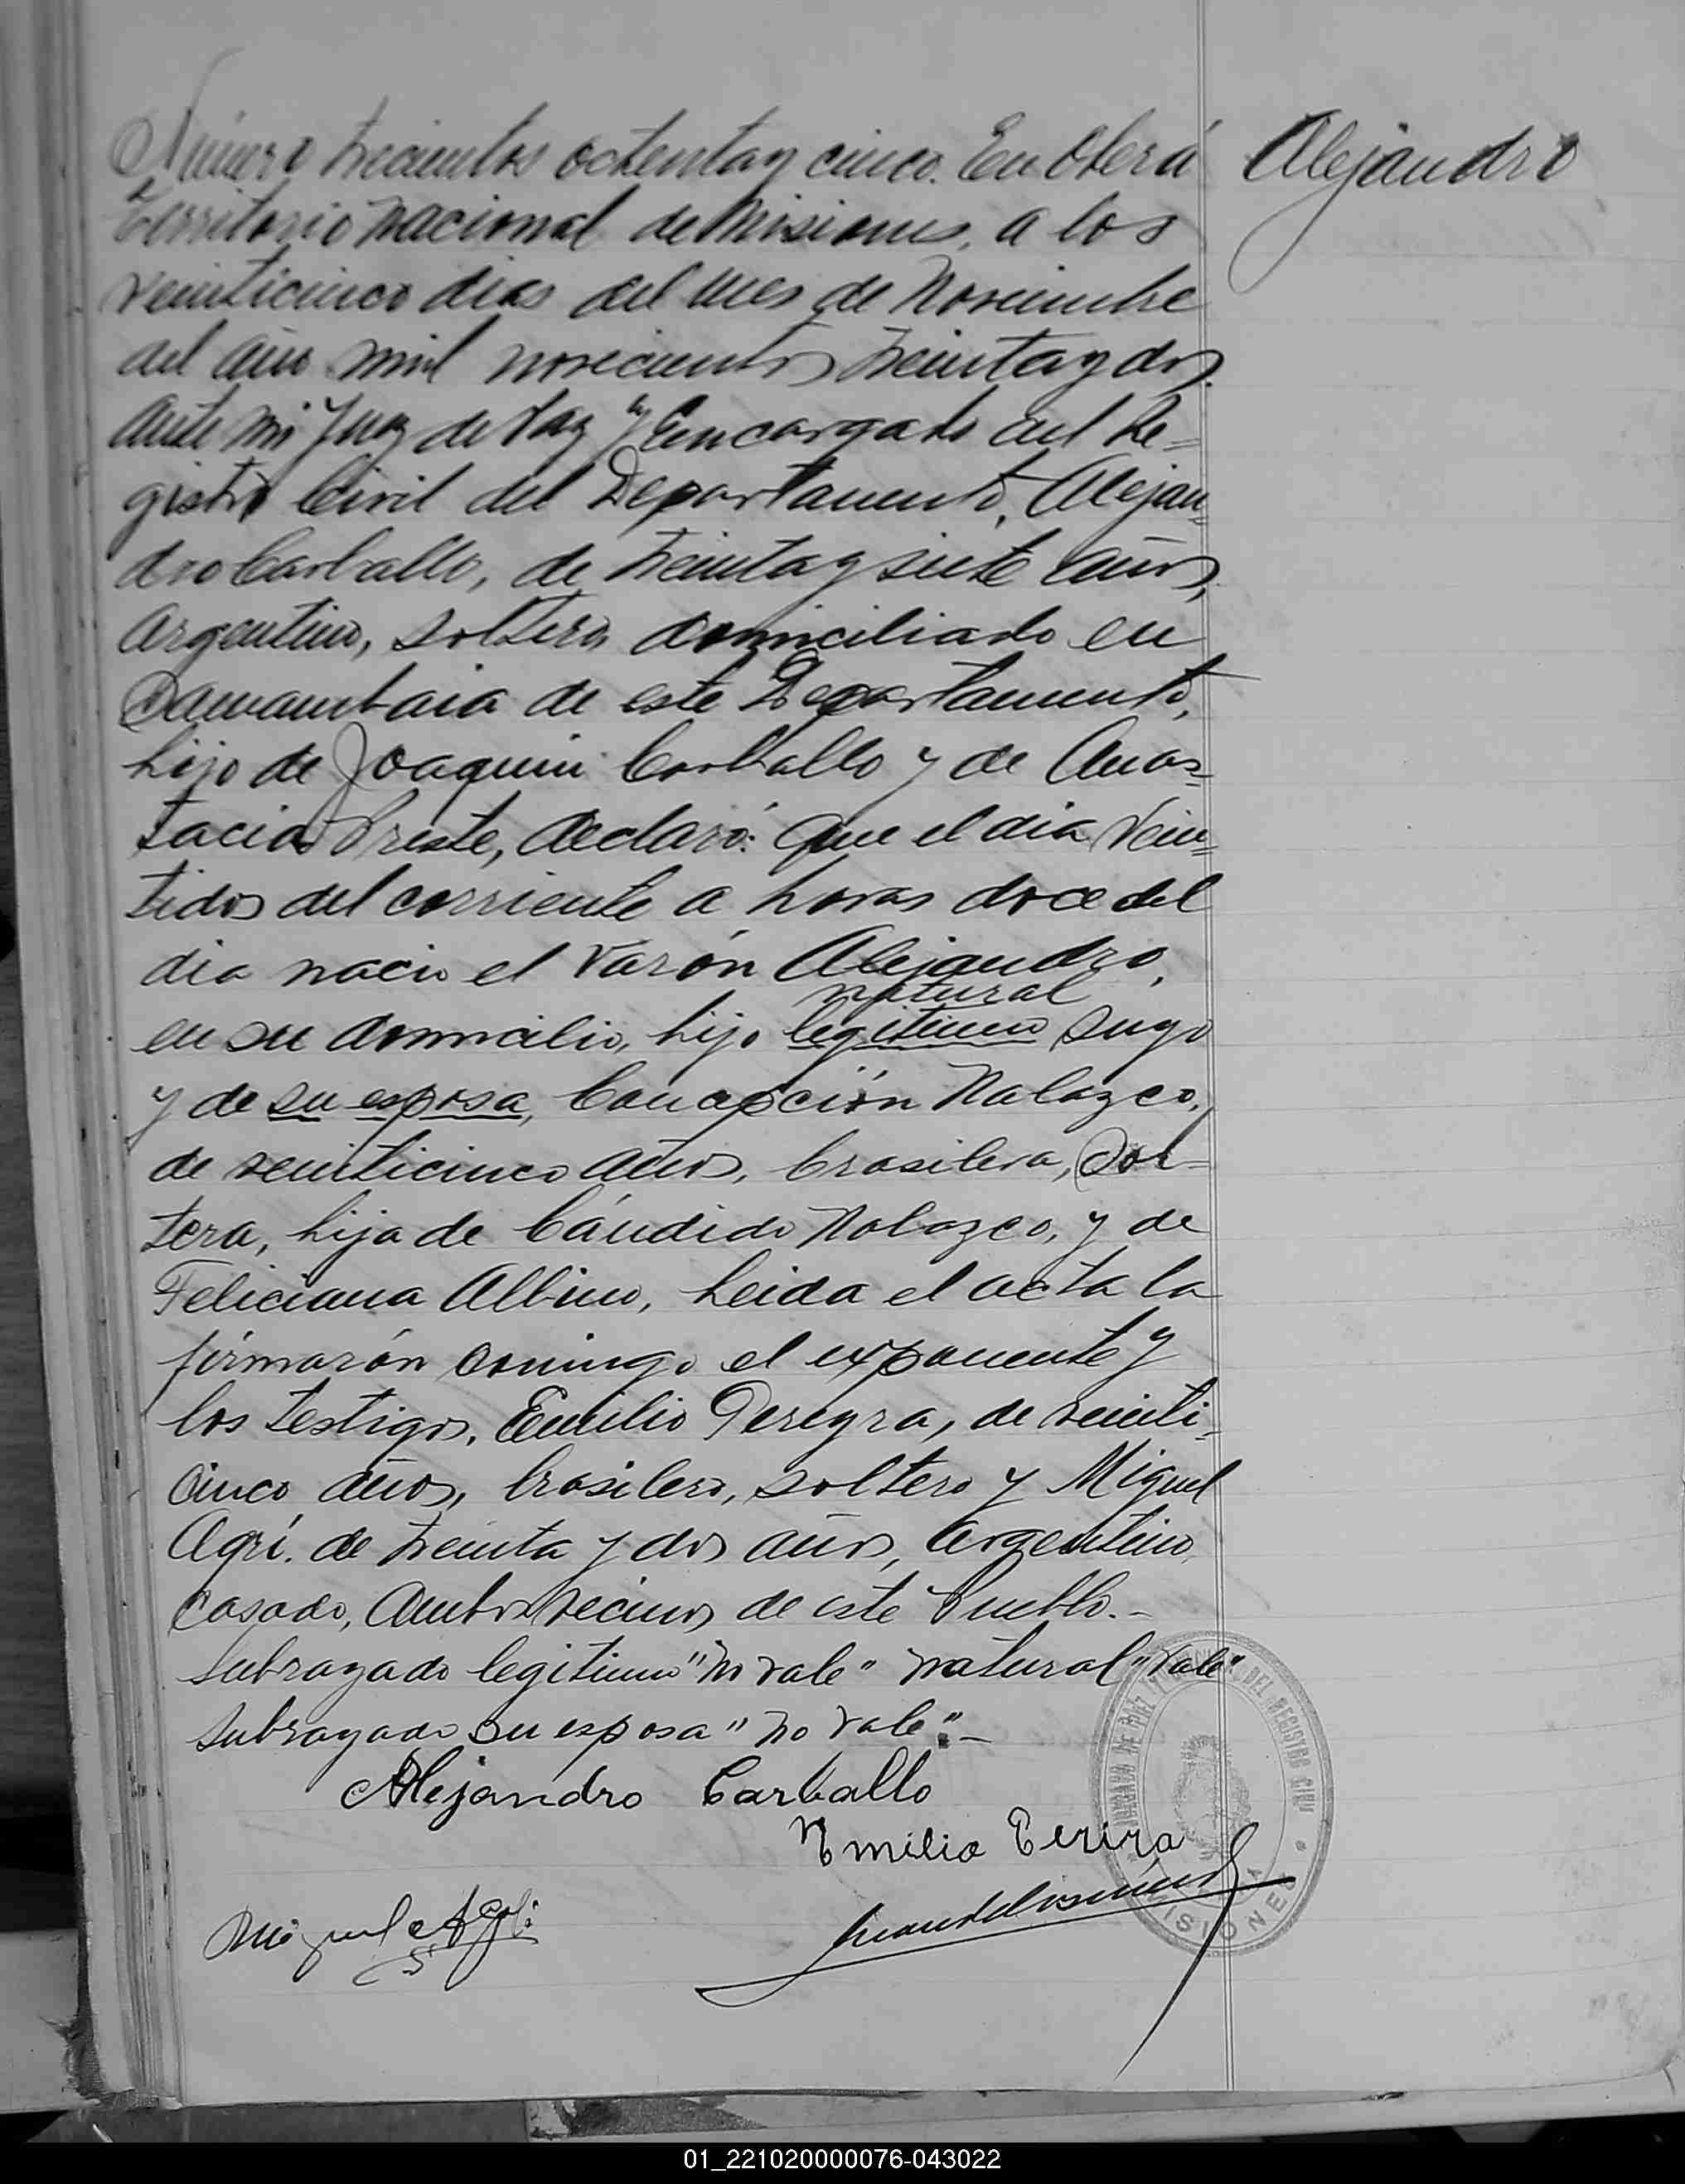 Número trecientos ochentay cinco. En Oberá
Alejandro
Territorio Nacional de Misiones, a los
veinticinco dias del mes de Noviembre
del año mil novecientos treintaydos
ante mi Juez de Paz y Encargado del Re=
gistro Civil del Departamento, Alejan=
dro Carballo, de treintaysiete años,
Argentino, soltero, domiciliado en
de este Departamento,
hijo de Joaquin Carballo y de Anas=
tacia Preste, declaró: Que el dia vein=
tidos del corriente a horas doce del
dia nacio el varón Alejandro,
natural
en su domicilio, hijo legitimo suyo
y de su esposa, Concepción Nalazco,
de veinticinco años, brasilera, sol=
tera, hija de Cándido Nalazco, y de
Feliciana Albino, Leida el acta la
firmarón conmigo el exponente y
los testigos, Emilio Pereyra, de veinti=
cinco años, brasilero, soltero y Miguel
Agri, de treinta y dos años, argentino,
casado, ambos vecinos de este Pueblo.-
Subrayado legitimo "no vale" natural "vale"
Subrayado su esposa "no vale".-
Alejandro Carballo
Emilio Perira
Miguel
JUZGADO DE PAZ DEL REGISTRO CIVIL
MISIONES
01_221020000076-043022